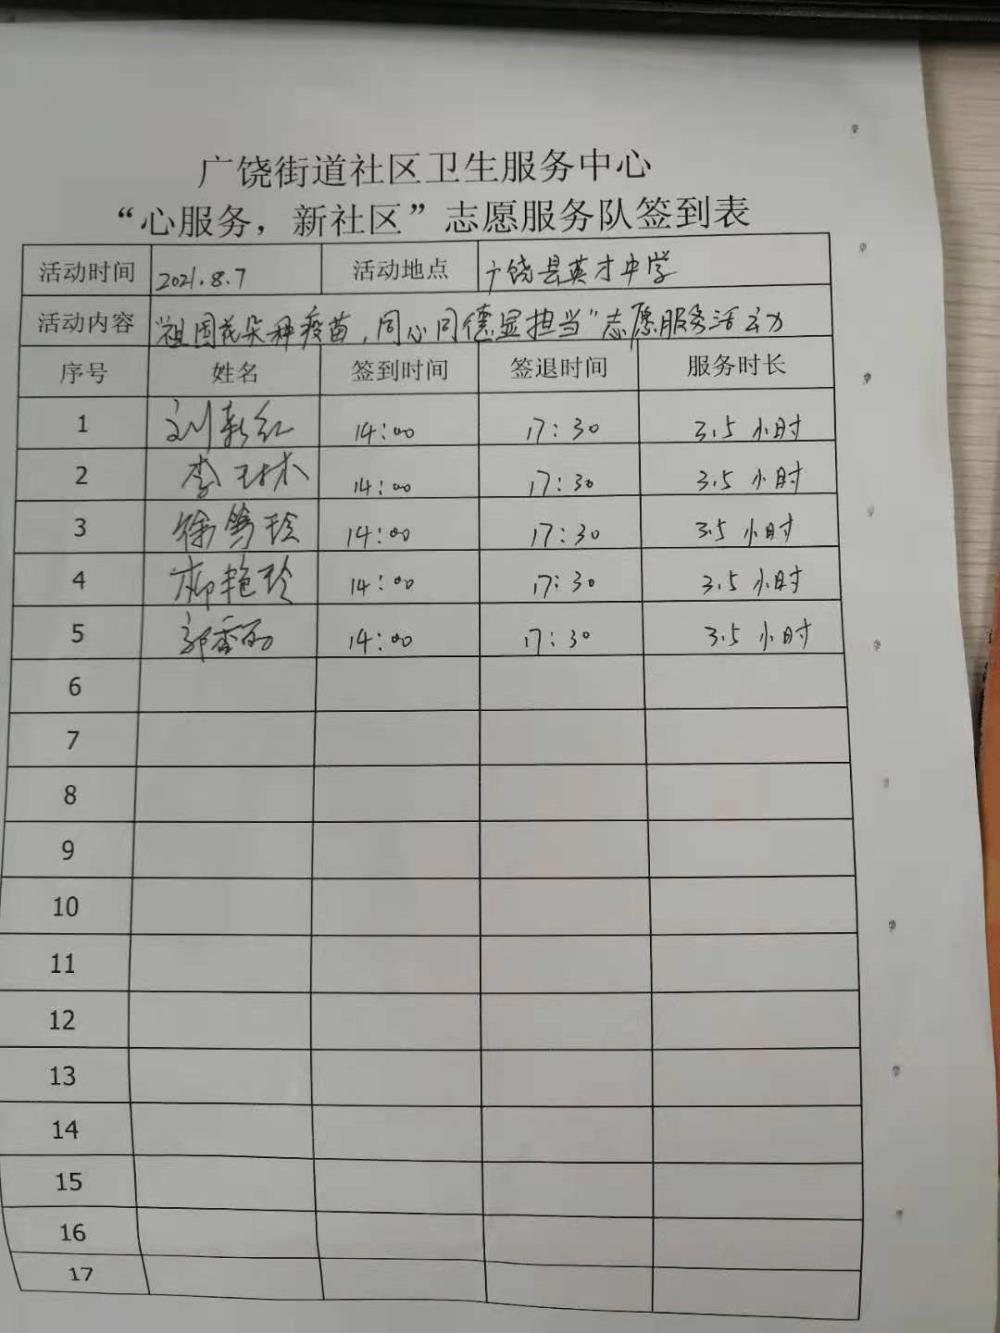 广饶街道社区卫生服务中心
“心服务，新社区”志愿服务队签到表
活动时间 2021.8.7 活动地点 广饶县英才中学
活动内容 “祖国花朵种疫苗，同心同德显担当”志愿服务活动
序号 姓名 签到时间 签退时间 服务时长
1 刘新红 14:00 17:30 3.5 小时
2 李 14:00 17:30 3.5 小时
3 徐 14:00 17:30 3.5 小时
4 柳艳玲 14:00 17:30 3.5 小时
5 郭香 14:00 17:30 3.5 小时
6
7
8
9
10
11
12
13
14
15
16
17